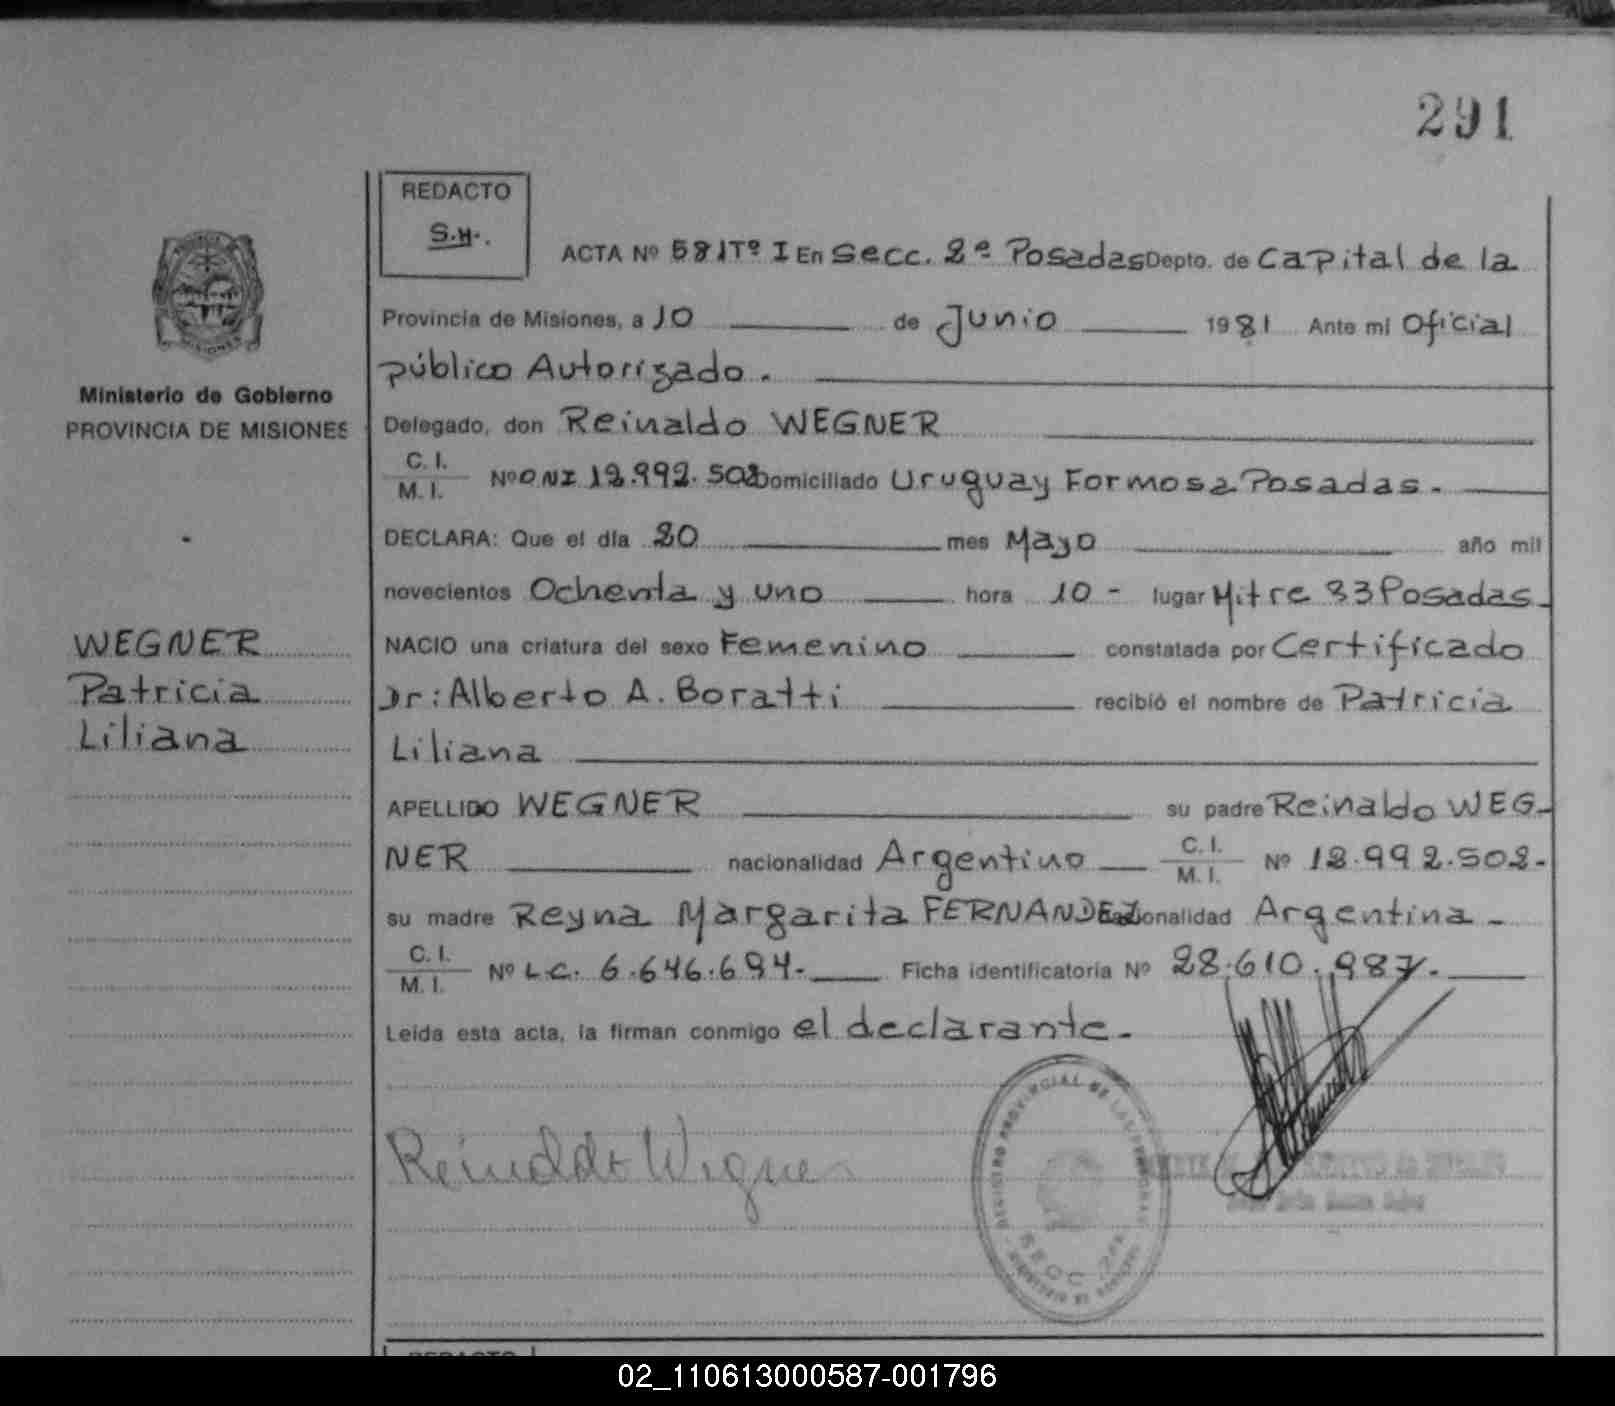 291
REDACTO
S.H.
ACTA Nº 581 Tº I En Secc. 2ª Posadas Depto. de Capital de la
Provincia de Misiones, a 10 de Junio 1981 Ante mi Oficial
público Autorizado.
Ministerio de Gobierno
PROVINCIA DE MISIONES
Delegado, don Reinaldo WEGNER
C. I.
M. I.
Nº DNI 12.992.502 Domiciliado Uruguay Formosa Posadas.
DECLARA: Que el día 20 mes Mayo año mil
novecientos Ochenta y uno hora 10 - lugar Mitre 33 Posadas.
WEGNER
Patricia
Liliana
NACIO una criatura del sexo Femenino constatada por Certificado
Dr: Alberto A. Boratti recibió el nombre de Patricia
Liliana
APELLIDO WEGNER su padre Reinaldo WEG-
NER nacionalidad Argentino C. I. M. I. Nº 12.992.502.-
su madre Reyna Margarita FERNANDEZ nacionalidad Argentina -
C. I.
M. I.
Nº L.C. 6.646.694.- Ficha identificatoria Nº 28.610.987.-
Leida esta acta, la firman conmigo el declarante.-
Reinaldo Wegner
REGISTRO PROVINCIAL DE LAS PERSONAS
SECC. 2da.
REDACTO
02_110613000587-001796